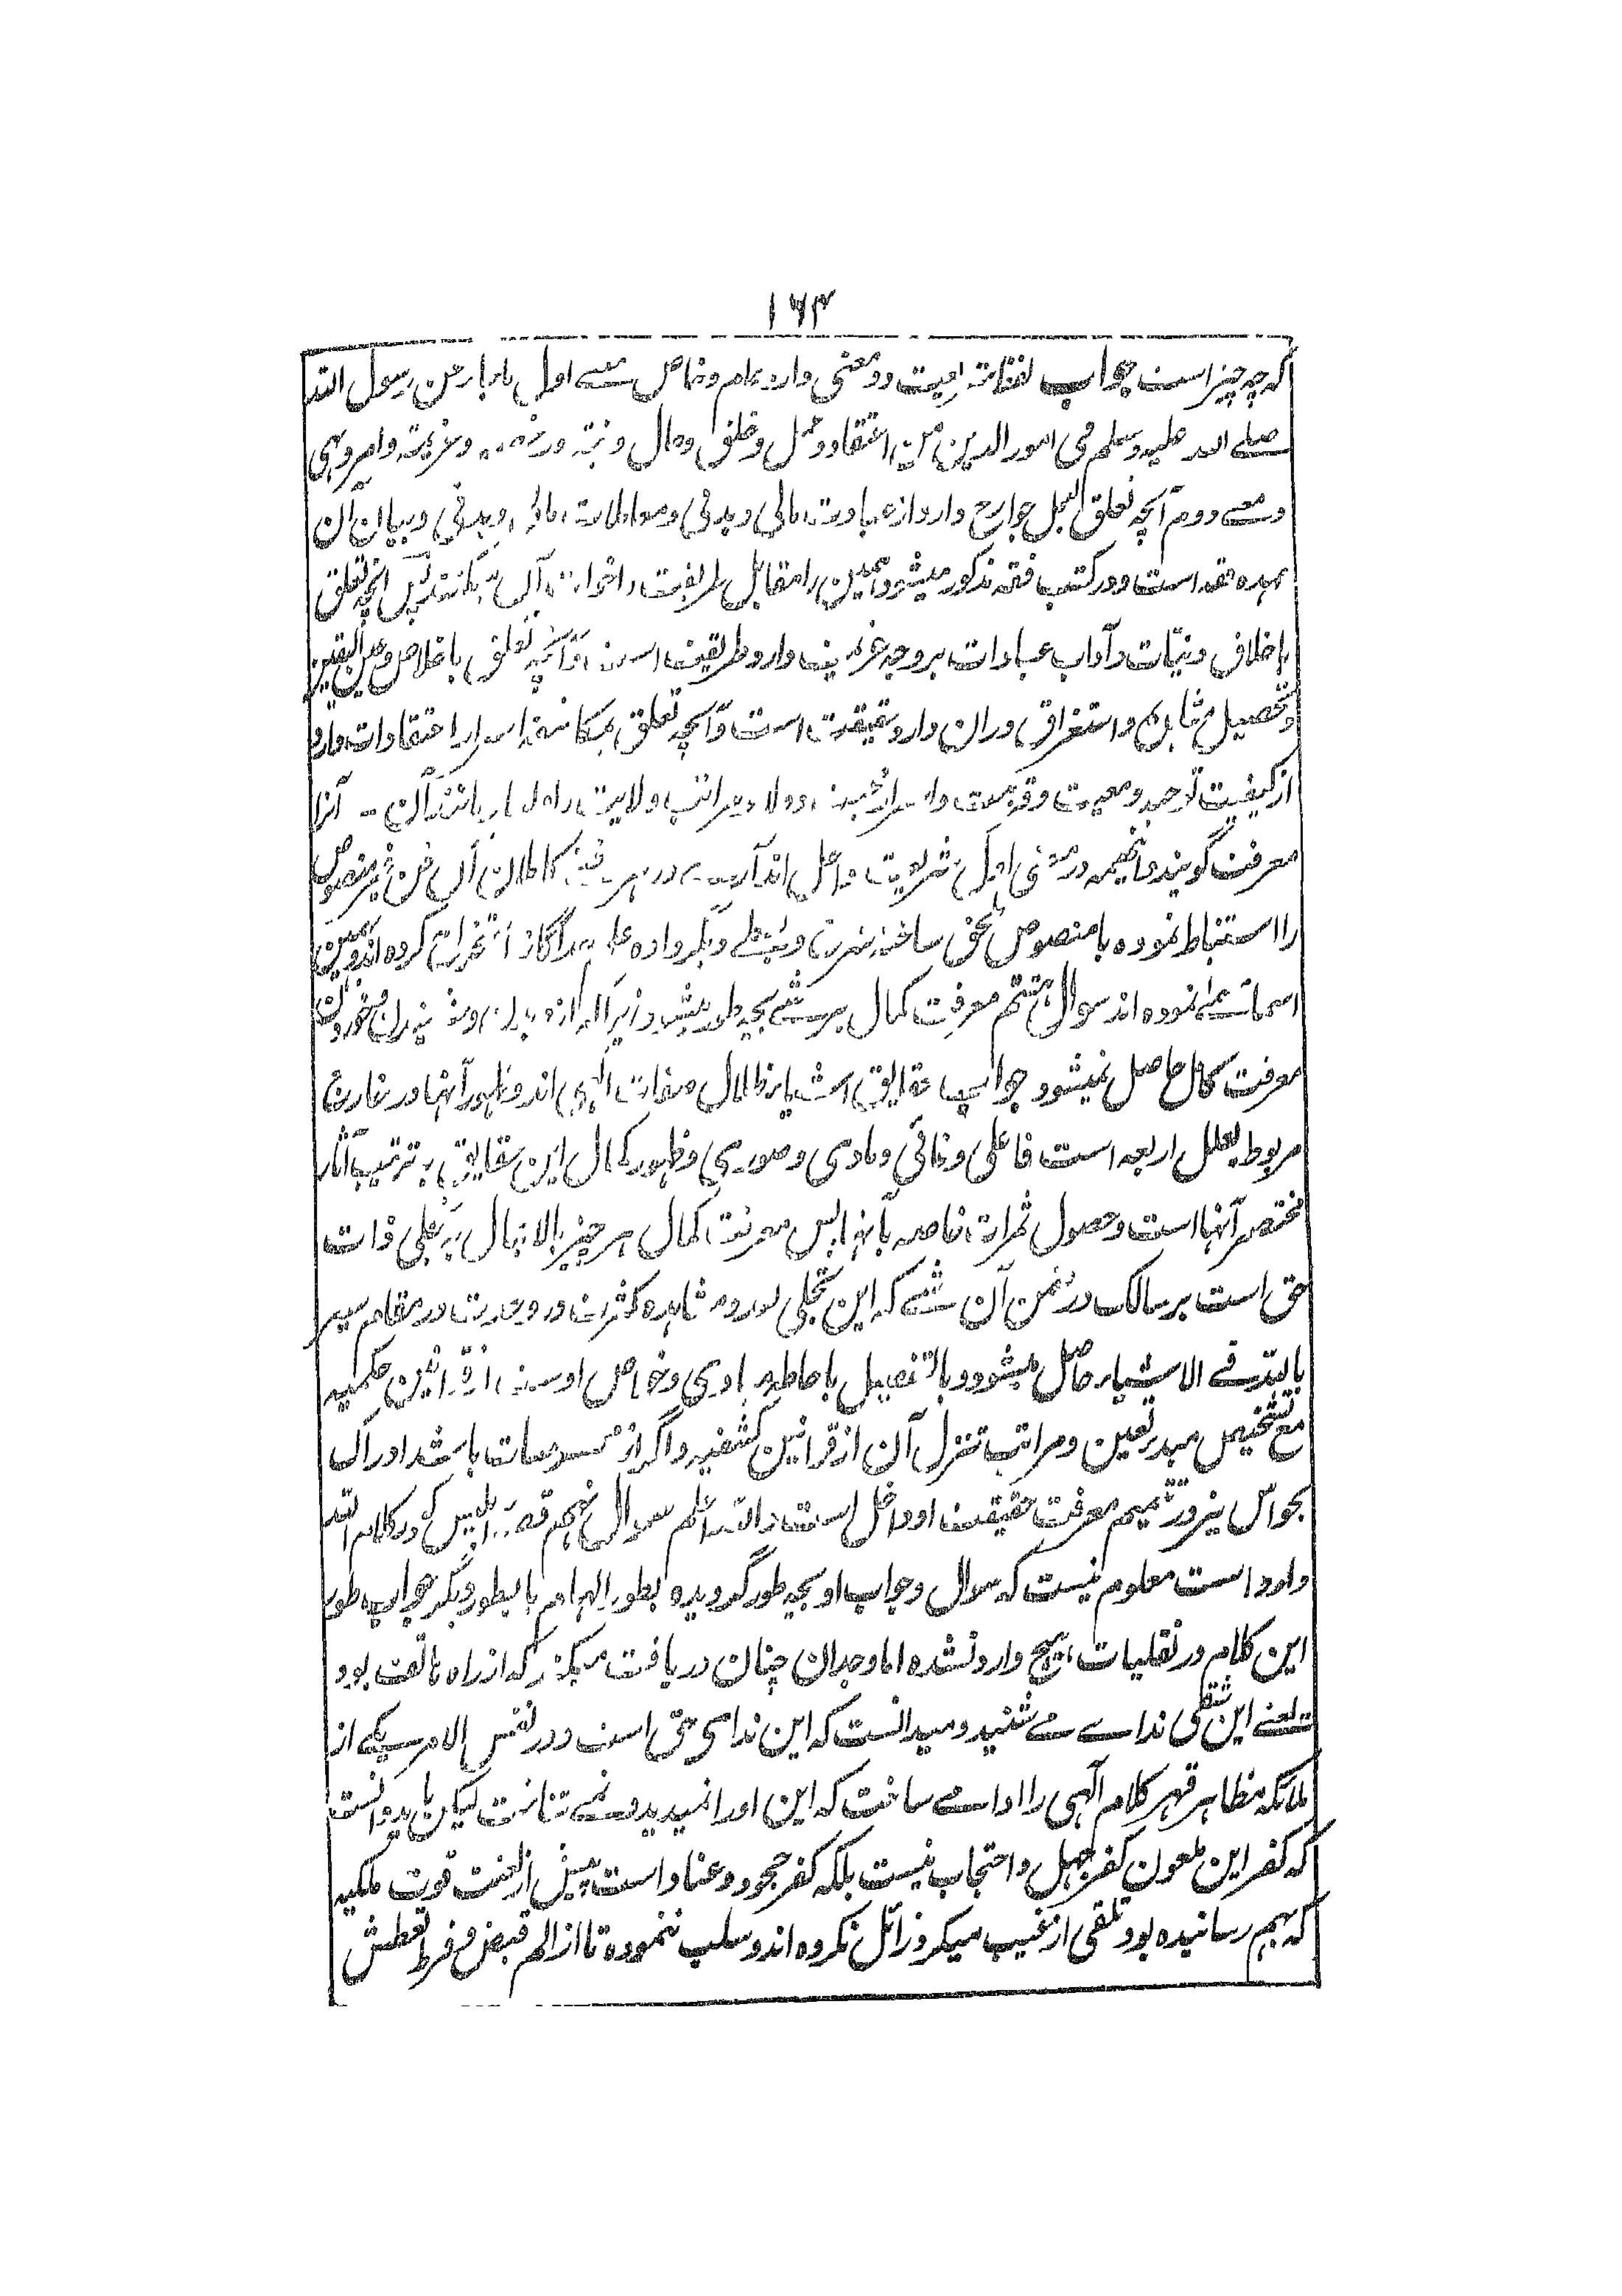 ۱۶۳
که چه چیز است جواب لفظ شریعت دو معنی دارد عام و خاص معنے اول ما جاء من رسول الله
صلے الله علیه وسلم فی امور الدین من اعتقاد و عمل و خلق و حال و نیة و رخصة و عزیمة و امر و نهی
و معنے دوم آنچه تعلق بعمل جوارح دارد از عبادت مالی و بدنی و معاملات مالی و بدنی و بیان آن
بعهده فقه است و در کتب فقه مذکور میشود همین را مقابل طریقت آنچه تعلق
باخلاق و نیّات و آداب عبادات بر وجه عزیمت دارد طریقت است و آنچه تعلق باخلاص و عین الیقین
و تحصیل مشاهده و استغراق در آن دارد حقیقت است و آنچه تعلق بمکاشفه اسرار اعتقادات دارد
از کیفیت توحید و معیت و قربت و اسرار محبت و ولا و مراتب ولایت و امثال آن آنرا
معرفت گویند و اینهمه در معنی اول شریعت داخل اند آرے در هر فن کاملان آن فن غیر منصوص
را استنباط نموده با منصوص ملحق ساخته کرده اند و همین
اسما مسمے نموده اند سوال هشتم معرفت کمال هر شے بچه طور میشود زیرا که از دیدن و شنیدن و خوردن
معرفت کمال حاصل نمیشود جواب حقایق اشیا ظلال صفات الهی اند و ظهور آنها در خارج
مربوط بعلل اربعه است فاعلی و غائی و مادی و صوری و ظهور کمال این حقایق بترتیب آثار
مختص آنها است و حصول ثمرات خاصه بآنها پس معرفت کمال هر چیز بالاجمال بتجلی ذات
حق است بر سالک در ضمن آن شے که این تجلی بعد مشاهده کثرت در وحدت در مقام سیر
بالله فے الاشیاء حاصل میشود و بالتفصیل باحاطه مبادی و خواص اوست از قوانین حکمیه
مع تشخیص مبدء تعین و مراتب تنزل آن از قوانین کشفیه و اگر از محسوسات باشد ادراک
بحواس نیز در تتمیم معرفت حقیقت او داخل است والله اعلم سوال نهم قصه ابلیس که در کلام الله
وارد است معلوم نیست که سوال و جواب او بچه طور گردیده بطور الهام یا بطور دیگر جواب طور
این کلام در نقلیات هیچ وارد نشده اما وجدان چنان دریافت میکند که از راه هاتف بود
یعنے این شقی نداے مے شنید و میدانست که این نداء حق است و در نفس الامر یکے از
ملائکه مظاهر قهر کلام آلهی را ادا مے ساخت که این او را نمیدید و نمے شناخت لیکن باید دانست
که کفر این ملعون کفر جهل و احتجاب نیست بلکه کفر جحود و عناد است پیش از لعنت قوت ملکیه
که بهم رسانیده بود و تلقی از غیب میکرد زائل نکرده اند و سلب ننموده تا از الم قبض و فرط تعطش